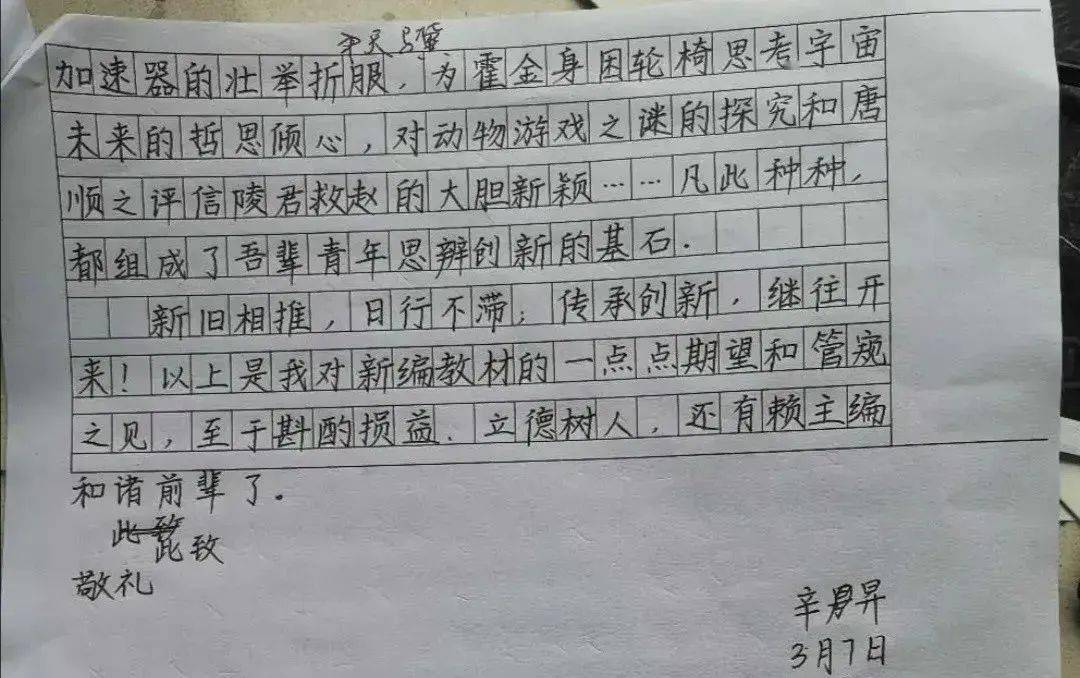 加速器的壮举折服，为霍金身困轮椅思考宇宙
未来的哲思倾心，对动物游戏之谜的探究和唐
顺之评信陵君救赵的大胆新颖……凡此种种，
都组成了吾辈青年思辨创新的基石.
新旧相推，日行不滞；传承创新，继往开
来！以上是我对新编教材的一点点期望和管窥
之见，至于斟酌损益.立德树人，还有赖主编
和诸前辈了.
此致
此致
敬礼
辛昇
3月7日